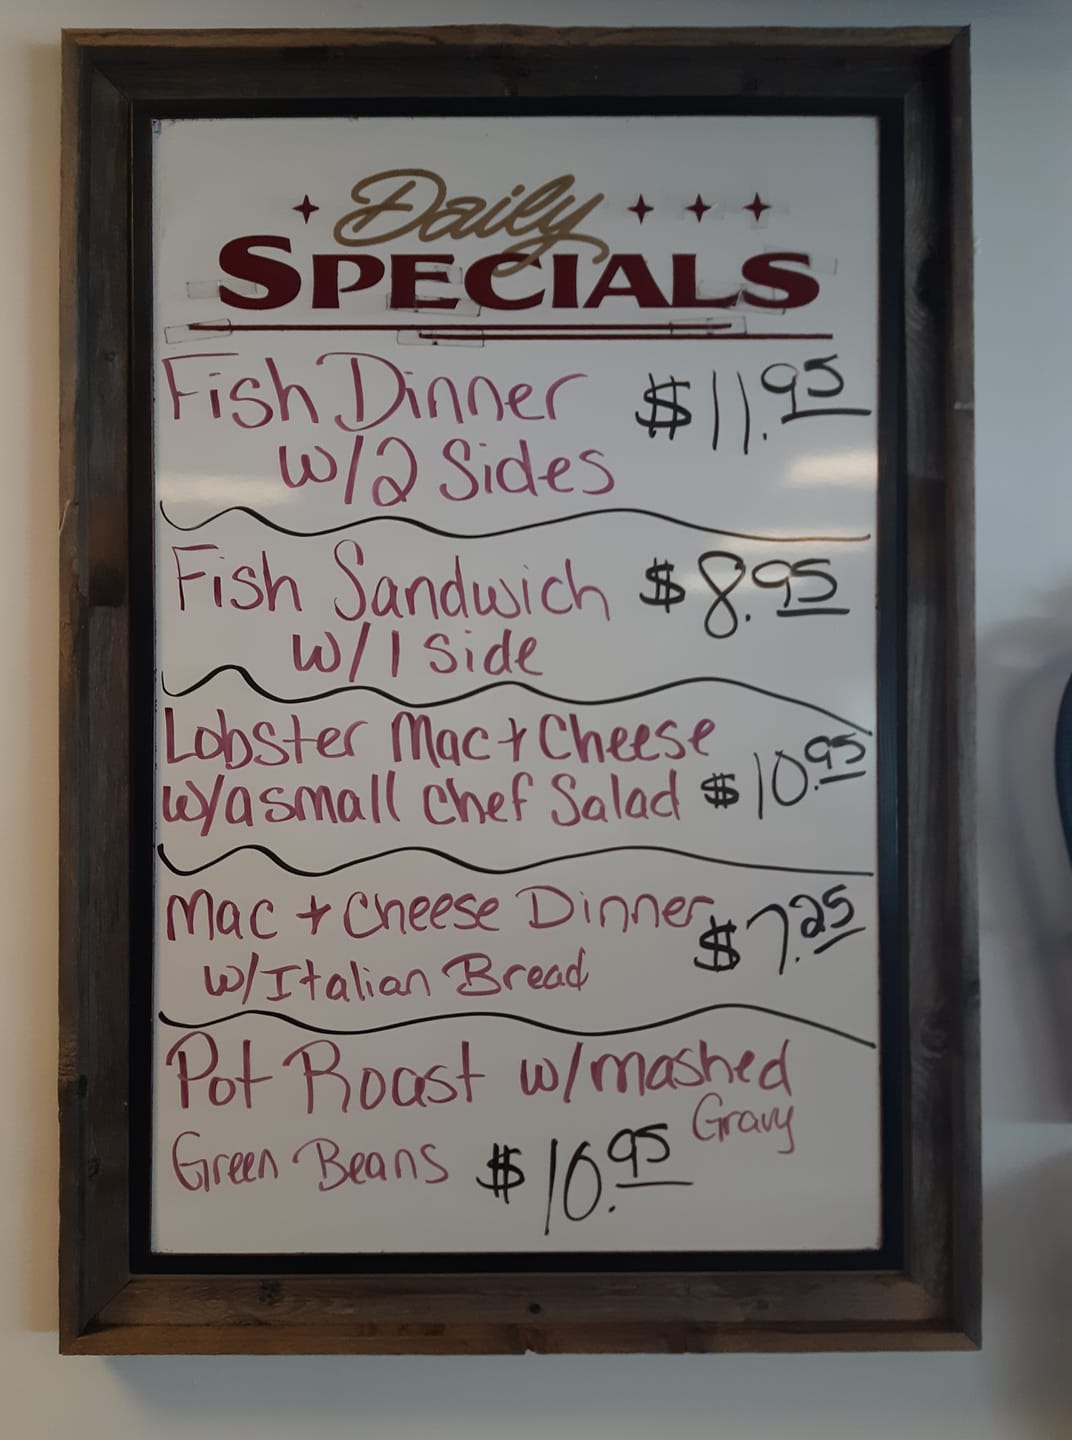 Daily
SPECIALS
Fish Dinner $11.95
w/2 Sides
Fish Sandwich $8.95
w/1 Side
Lobster Mac + Cheese
w/a small Chef Salad $10.95
Mac + Cheese Dinner $7.25
w/Italian Bread
Pot Roast w/mashed
Gravy
Green Beans $10.95